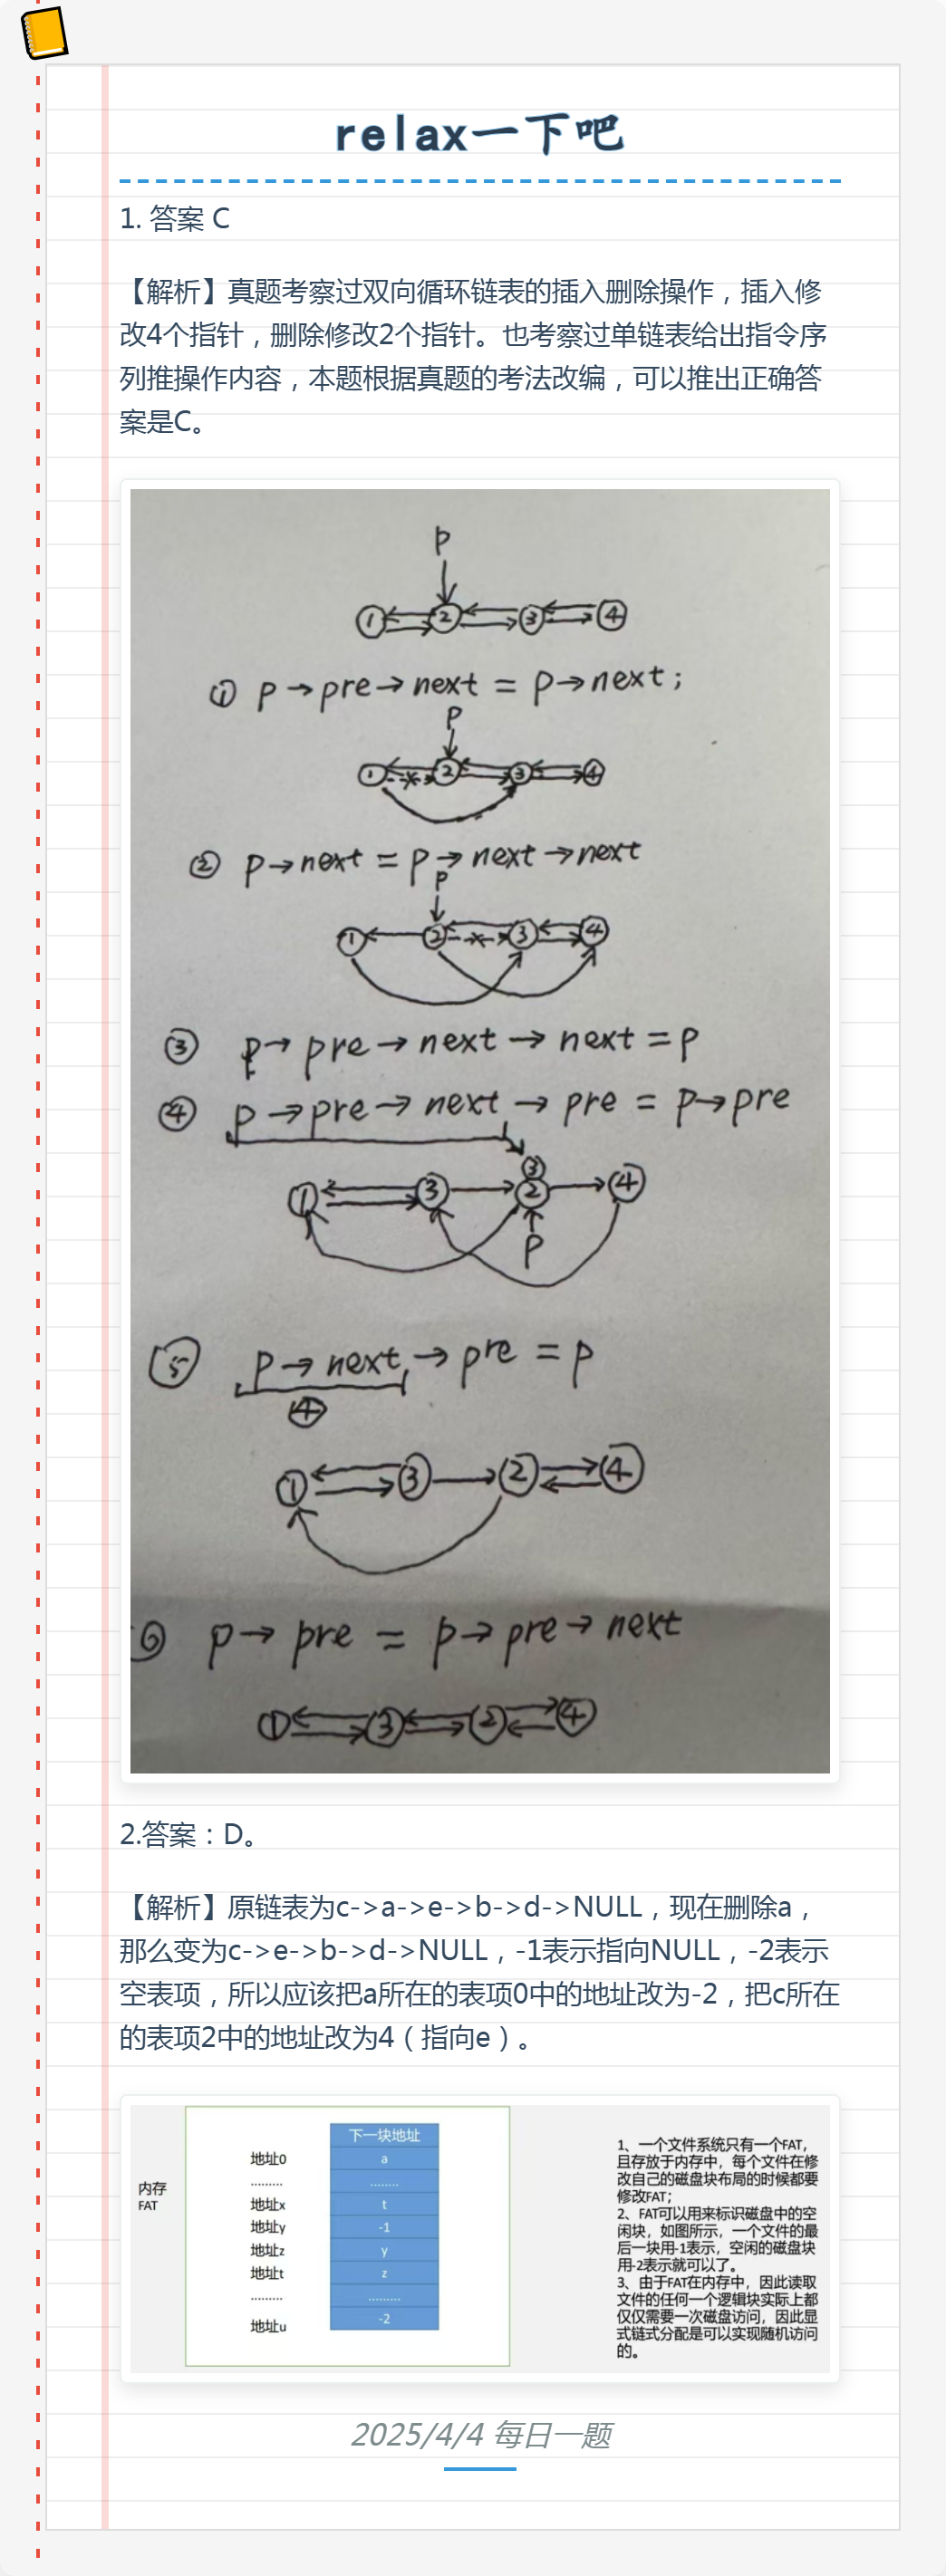 relax一下吧
1. 答案 C
【解析】真题考察过双向循环链表的插入删除操作，插入修
改4个指针，删除修改2个指针。也考察过单链表给出指令序
列推操作内容，本题根据真题的考法改编，可以推出正确答
案是C。
p
1 2 3 4
① p→pre→next = p→next;
p
1 2 3 4
② p→next = p→next→next
p
1 2 3 4
③ p→pre→next→next = p
④ p→pre→next→pre = p→pre
③
1 3 2 4
p
⑤ p→next→pre = p
④
1 3 2 4
⑥ p→pre = p→pre→next
1 3 2 4
2.答案：D。
【解析】原链表为c->a->e->b->d->NULL，现在删除a，
那么变为c->e->b->d->NULL，-1表示指向NULL，-2表示
空表项，所以应该把a所在的表项0中的地址改为-2，把c所在
的表项2中的地址改为4（指向e）。
内存
FAT
下一块地址
地址0 a
……… ………
地址x t
地址y -1
地址z y
地址t z
……… ………
地址u -2
1、一个文件系统只有一个FAT，
且存放于内存中，每个文件在修
改自己的磁盘块布局的时候都要
修改FAT；
2、FAT可以用来标识磁盘中的空
闲块，如图所示，一个文件的最
后一块用-1表示，空闲的磁盘块
用-2表示就可以了。
3、由于FAT在内存中，因此读取
文件的任何一个逻辑块实际上都
仅仅需要一次磁盘访问，因此显
式链式分配是可以实现随机访问
的。
2025/4/4 每日一题